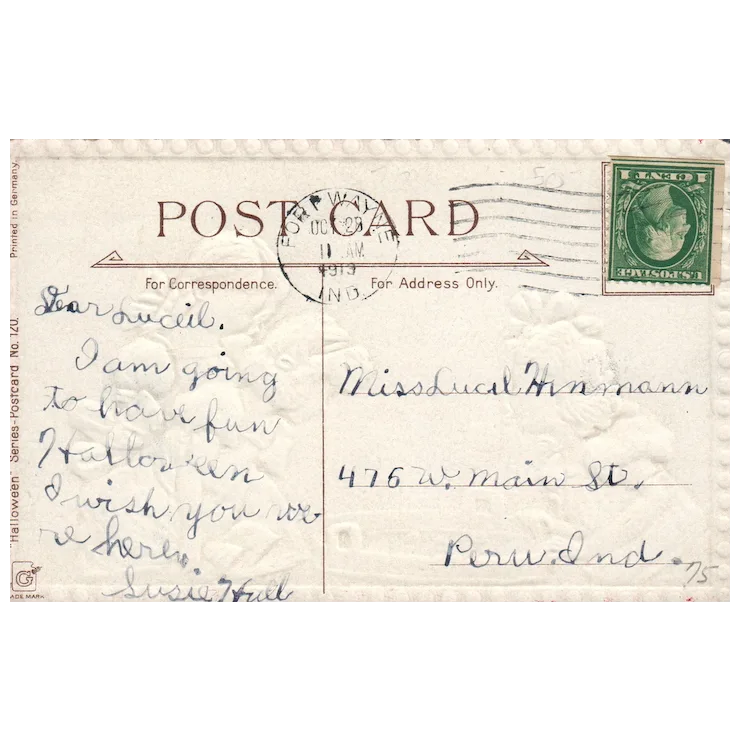 Printed in Germany.
"Halloween" Series-Postcard No. 120.
G
ADE MARK
POST CARD
For Correspondence.
For Address Only.
FORT WAYNE
OCT 28
11 AM
1913
IND.
1 CENT 1
U.S. POSTAGE
50
Dear Luceil.
I am going
to have fun
Halloween
I wish you we
re here.
Susie Hull
Miss Lucil Hinmann
476 W. Main St.
Peru. Ind.
75